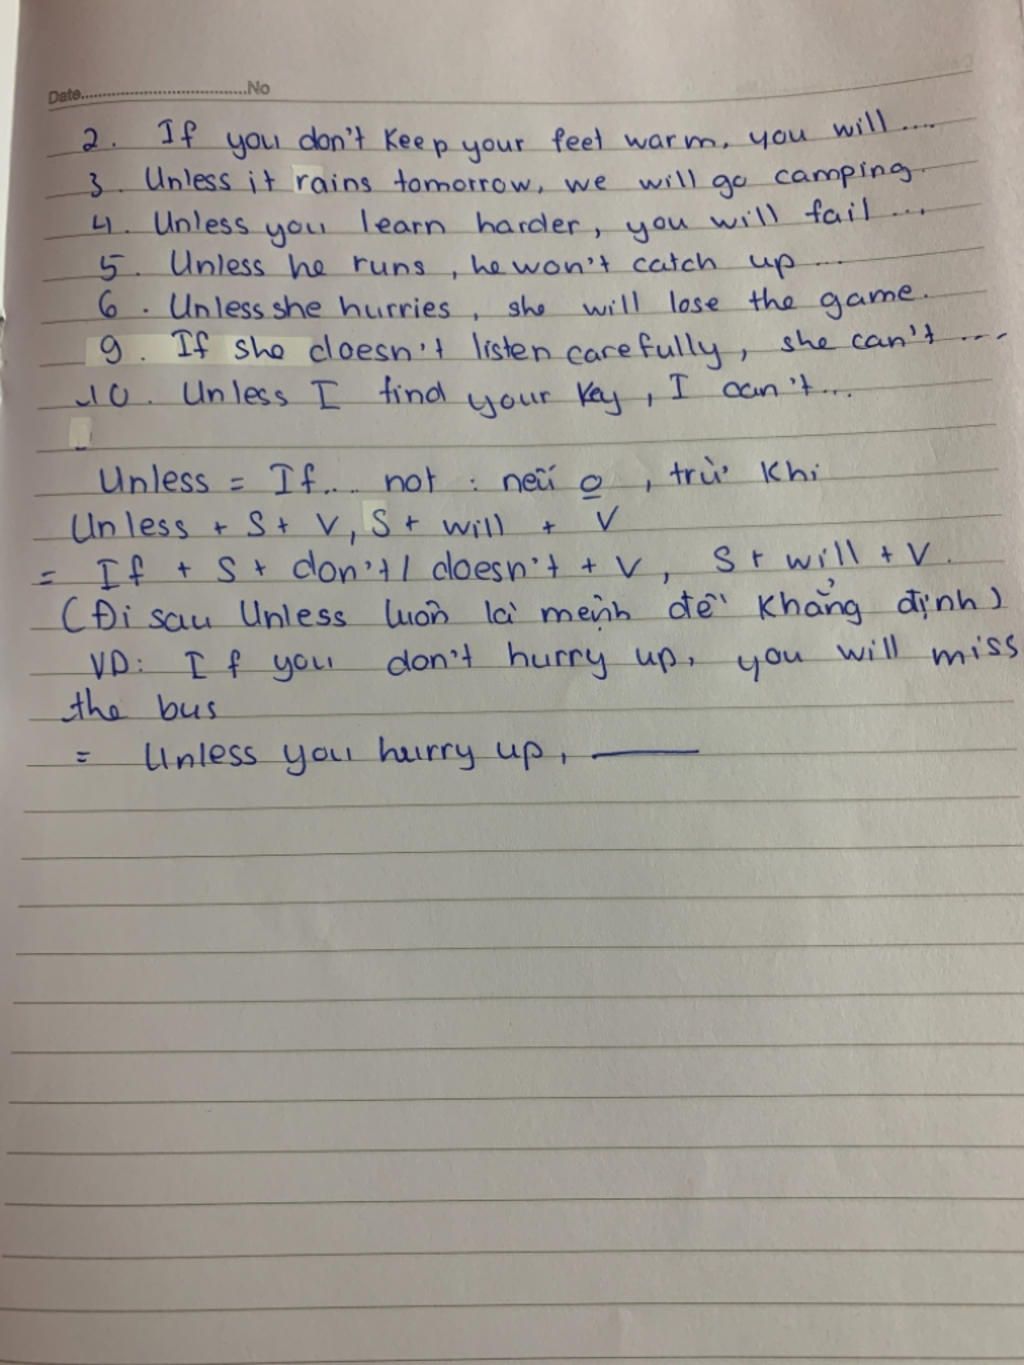 Date.....................................No
2. If you don't keep your feet warm, you will ....
3. Unless it rains tomorrow, we will go camping.
4. Unless you learn harder, you will fail ...
5. Unless he runs, he won't catch up ...
6. Unless she hurries, she will lose the game.
9. If she doesn't listen carefully, she can't ...
10. Unless I find your key, I can't...
Unless = If... not : nếu o, trừ khi
Unless + S + V, S + will + V
= If + S + don't / doesn't + V, S + will + V.
(Đi sau Unless luôn là mệnh đề khẳng định)
VD: If you don't hurry up, you will miss
the bus
= Unless you hurry up, ———